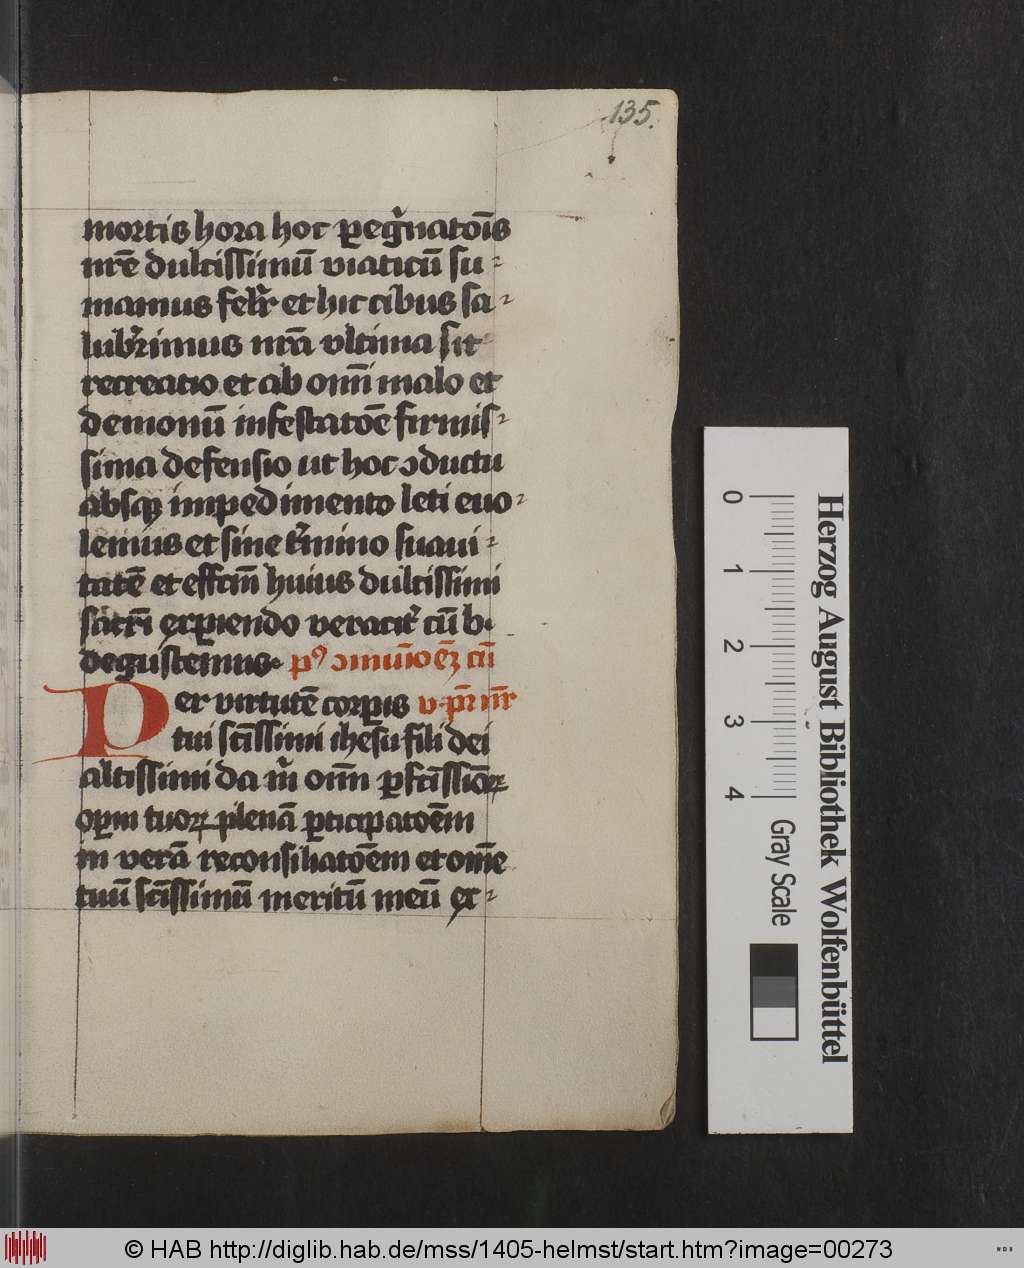 135.
mortis hora hoc ꝑegͥnatōis
nr̄e dulcissimū viaticū su⸗
mamus felr̄ et hic cibus sa⸗
lubͬrimus nr̄a vltima sit
recreatio et ab om̄i malo et
demonū infestatōe firmis⸗
sima defensio ut hoc ↄductu
absqꝫ impedimento leti euo⸗
lemus et sine tͬmino suaui⸗
tatē et effcm̄ huius dulcissimi
sacri ex̄piendo veracit᷑ cū b.
degustemus. pꝰ ↄmuīoēꝫ cū
Per virtutē corꝑis v. pr̄ nr̄
tui scīssimi ihesu fili dei
altissimi da m̄ om̄ ꝑfcīssiōꝝ
oꝑm tuoꝝ plenā ꝑticipatoēm
in verā reconsiliatoēm et om̄e
tuū scīssimū meritū meū ex⸗
Herzog August Bibliothek Wolfenbüttel
0 1 2 3 4
Gray Scale
© HAB http://diglib.hab.de/mss/1405-helmst/start.htm?image=00273